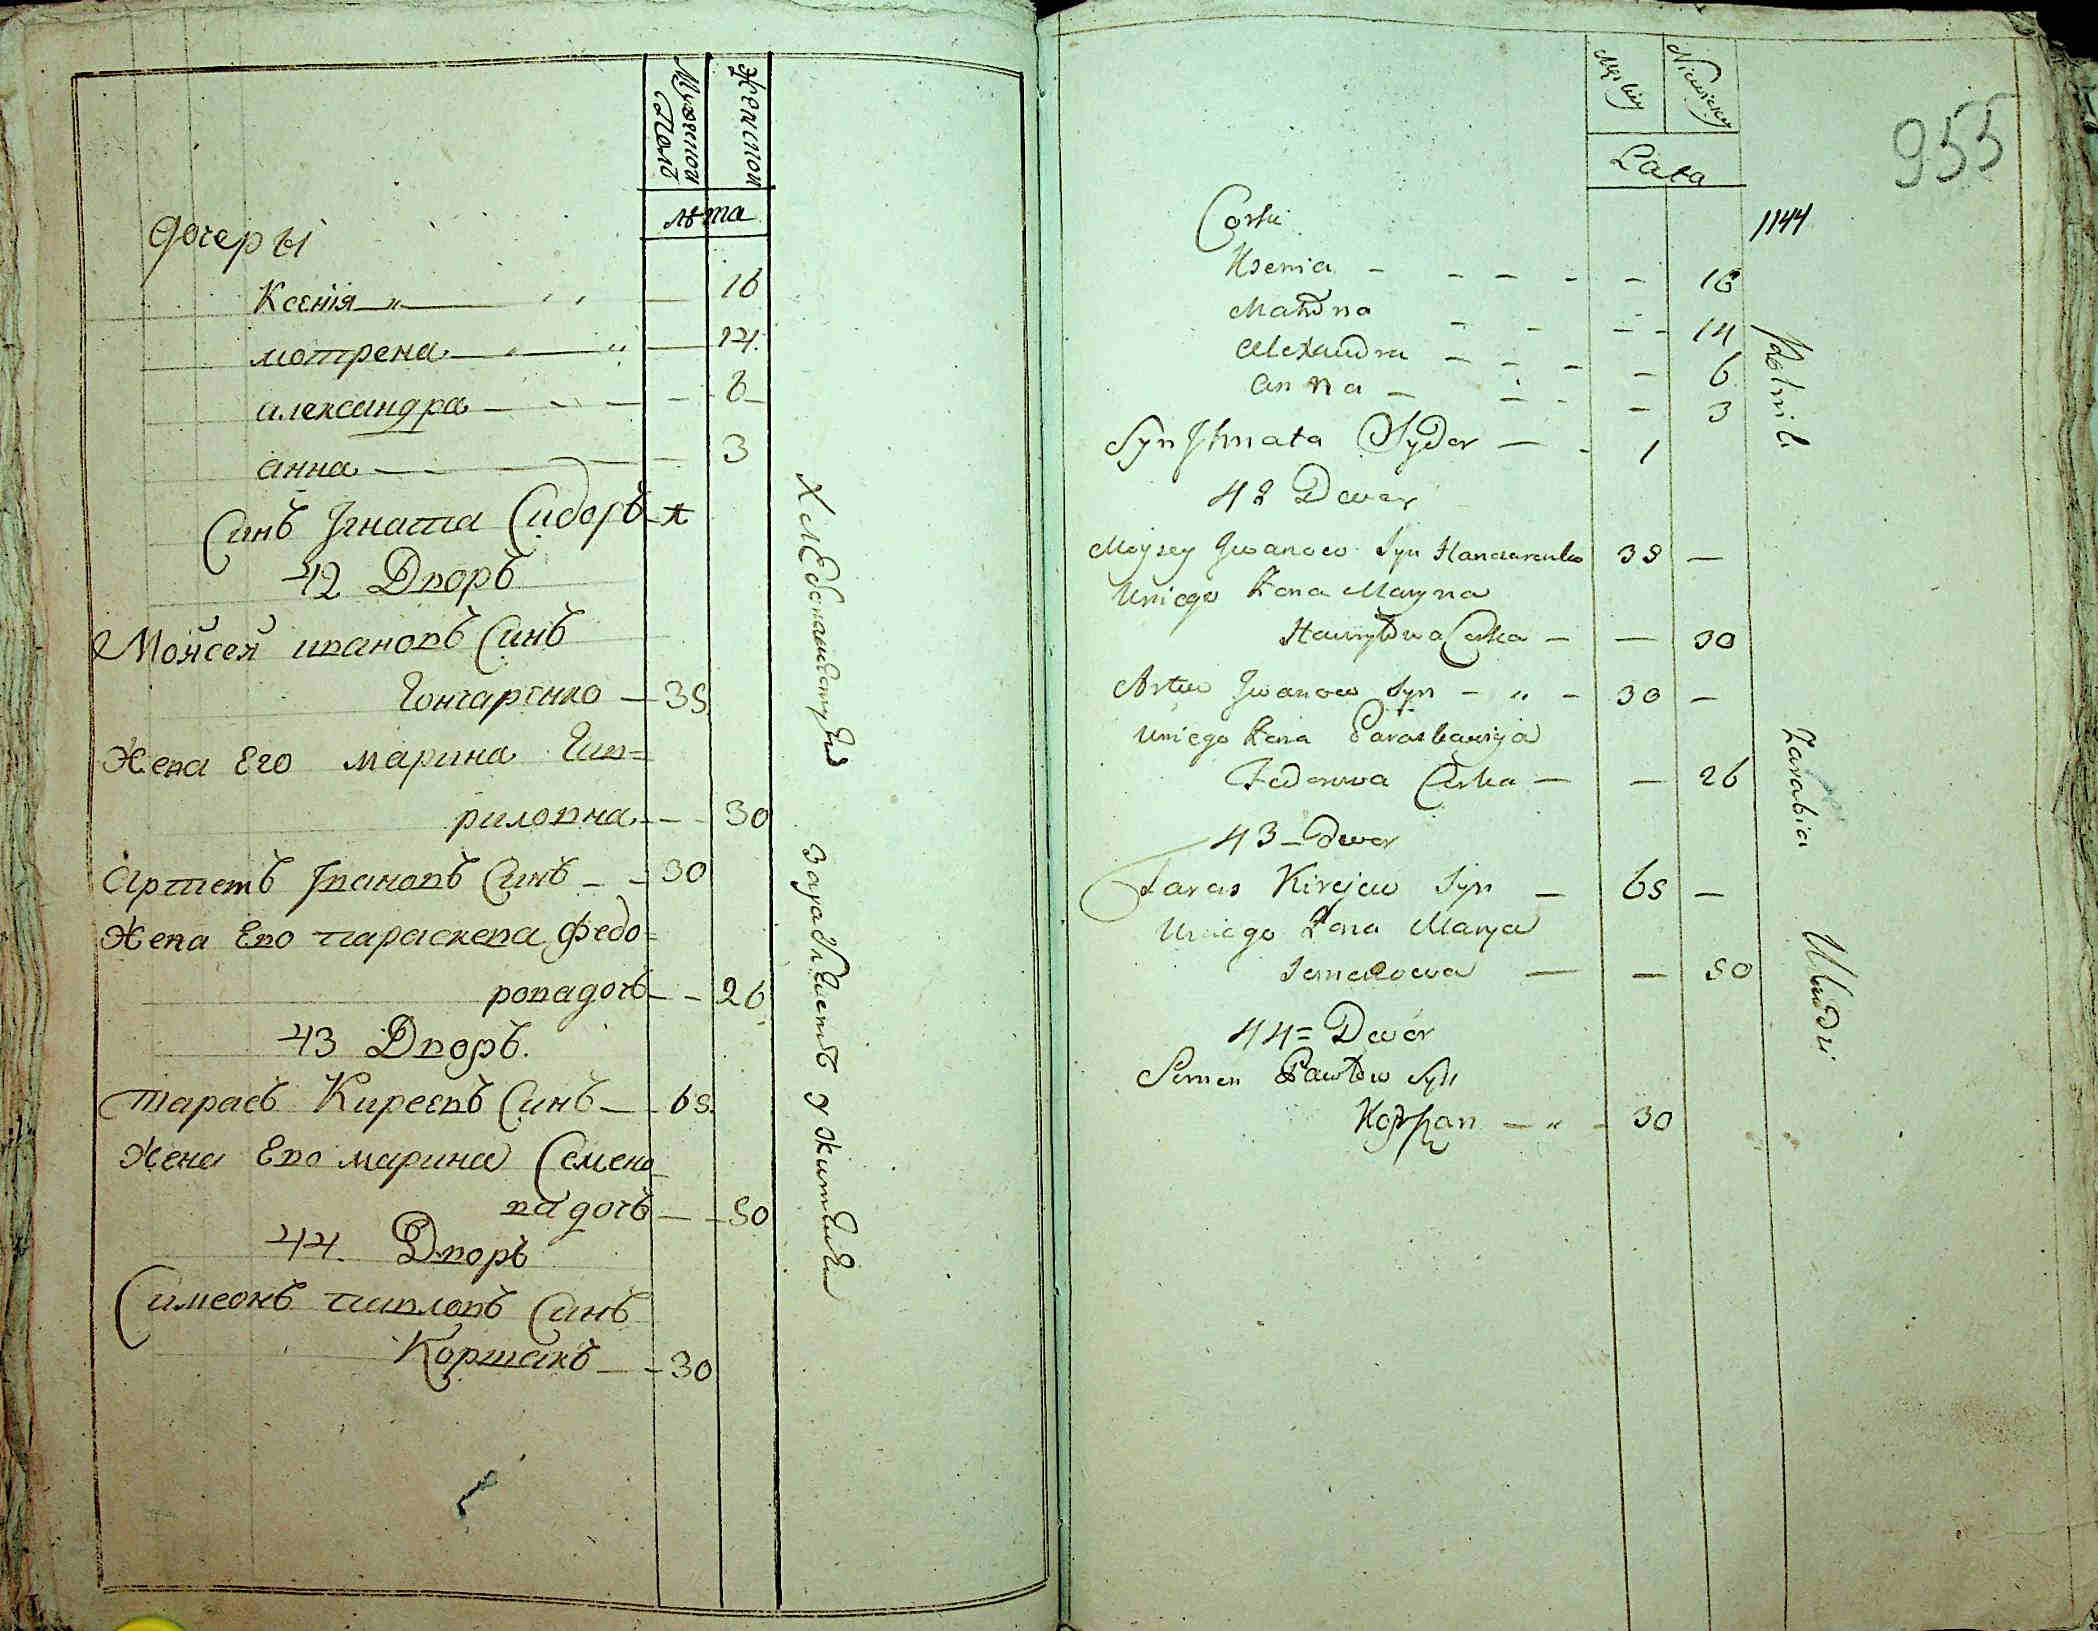 Мужескои Полъ
Женскои
лѣта
дочеры
Ксенія — 16
мотрена — 14
александра — 6
анна — 3
Синъ Iгната Сидоръ — 1
42 Дворъ
Мойсей иванов Синъ
Гончаренко — 35
Жена Его марина Гав=
риловна — 30
Артемъ Iвановъ Синъ — 30
Жена Ево параскева Федо=
рова дочъ — 26
43 Дворъ.
тарасъ Киреевъ Синъ — 65
Жена Ево марина Семено
ва дочъ — 50
44 Дворъ
Симеонъ павловъ Синъ
Коршакъ — 30
Хлѣбопашествуе зарабляетъ у жителеи
955
Męskiey
Niewieskiey
Lata
1144
Corki
Ksenia — 16
Matrona — 14
Alexandra — 6
Anna — 3
Syn Ihnata Sydor — 1
42 Dwor
Moysey Iwanow Syn Hanczarenko 35 —
Uniego Żona Maryna
Hawryłowa Corka — 30
Artem Iwanow Syn — 30 —
Uniego Żona Paraskawija
Fedorowa Corka — 26
43 Dwor
Taras Kirejew Syn — 65 —
Uniego Żona Marya
Semenowa — 50
44= Dwor
Semen Pawłow Syn
30
Rolnik
Zarabia
Uludzi